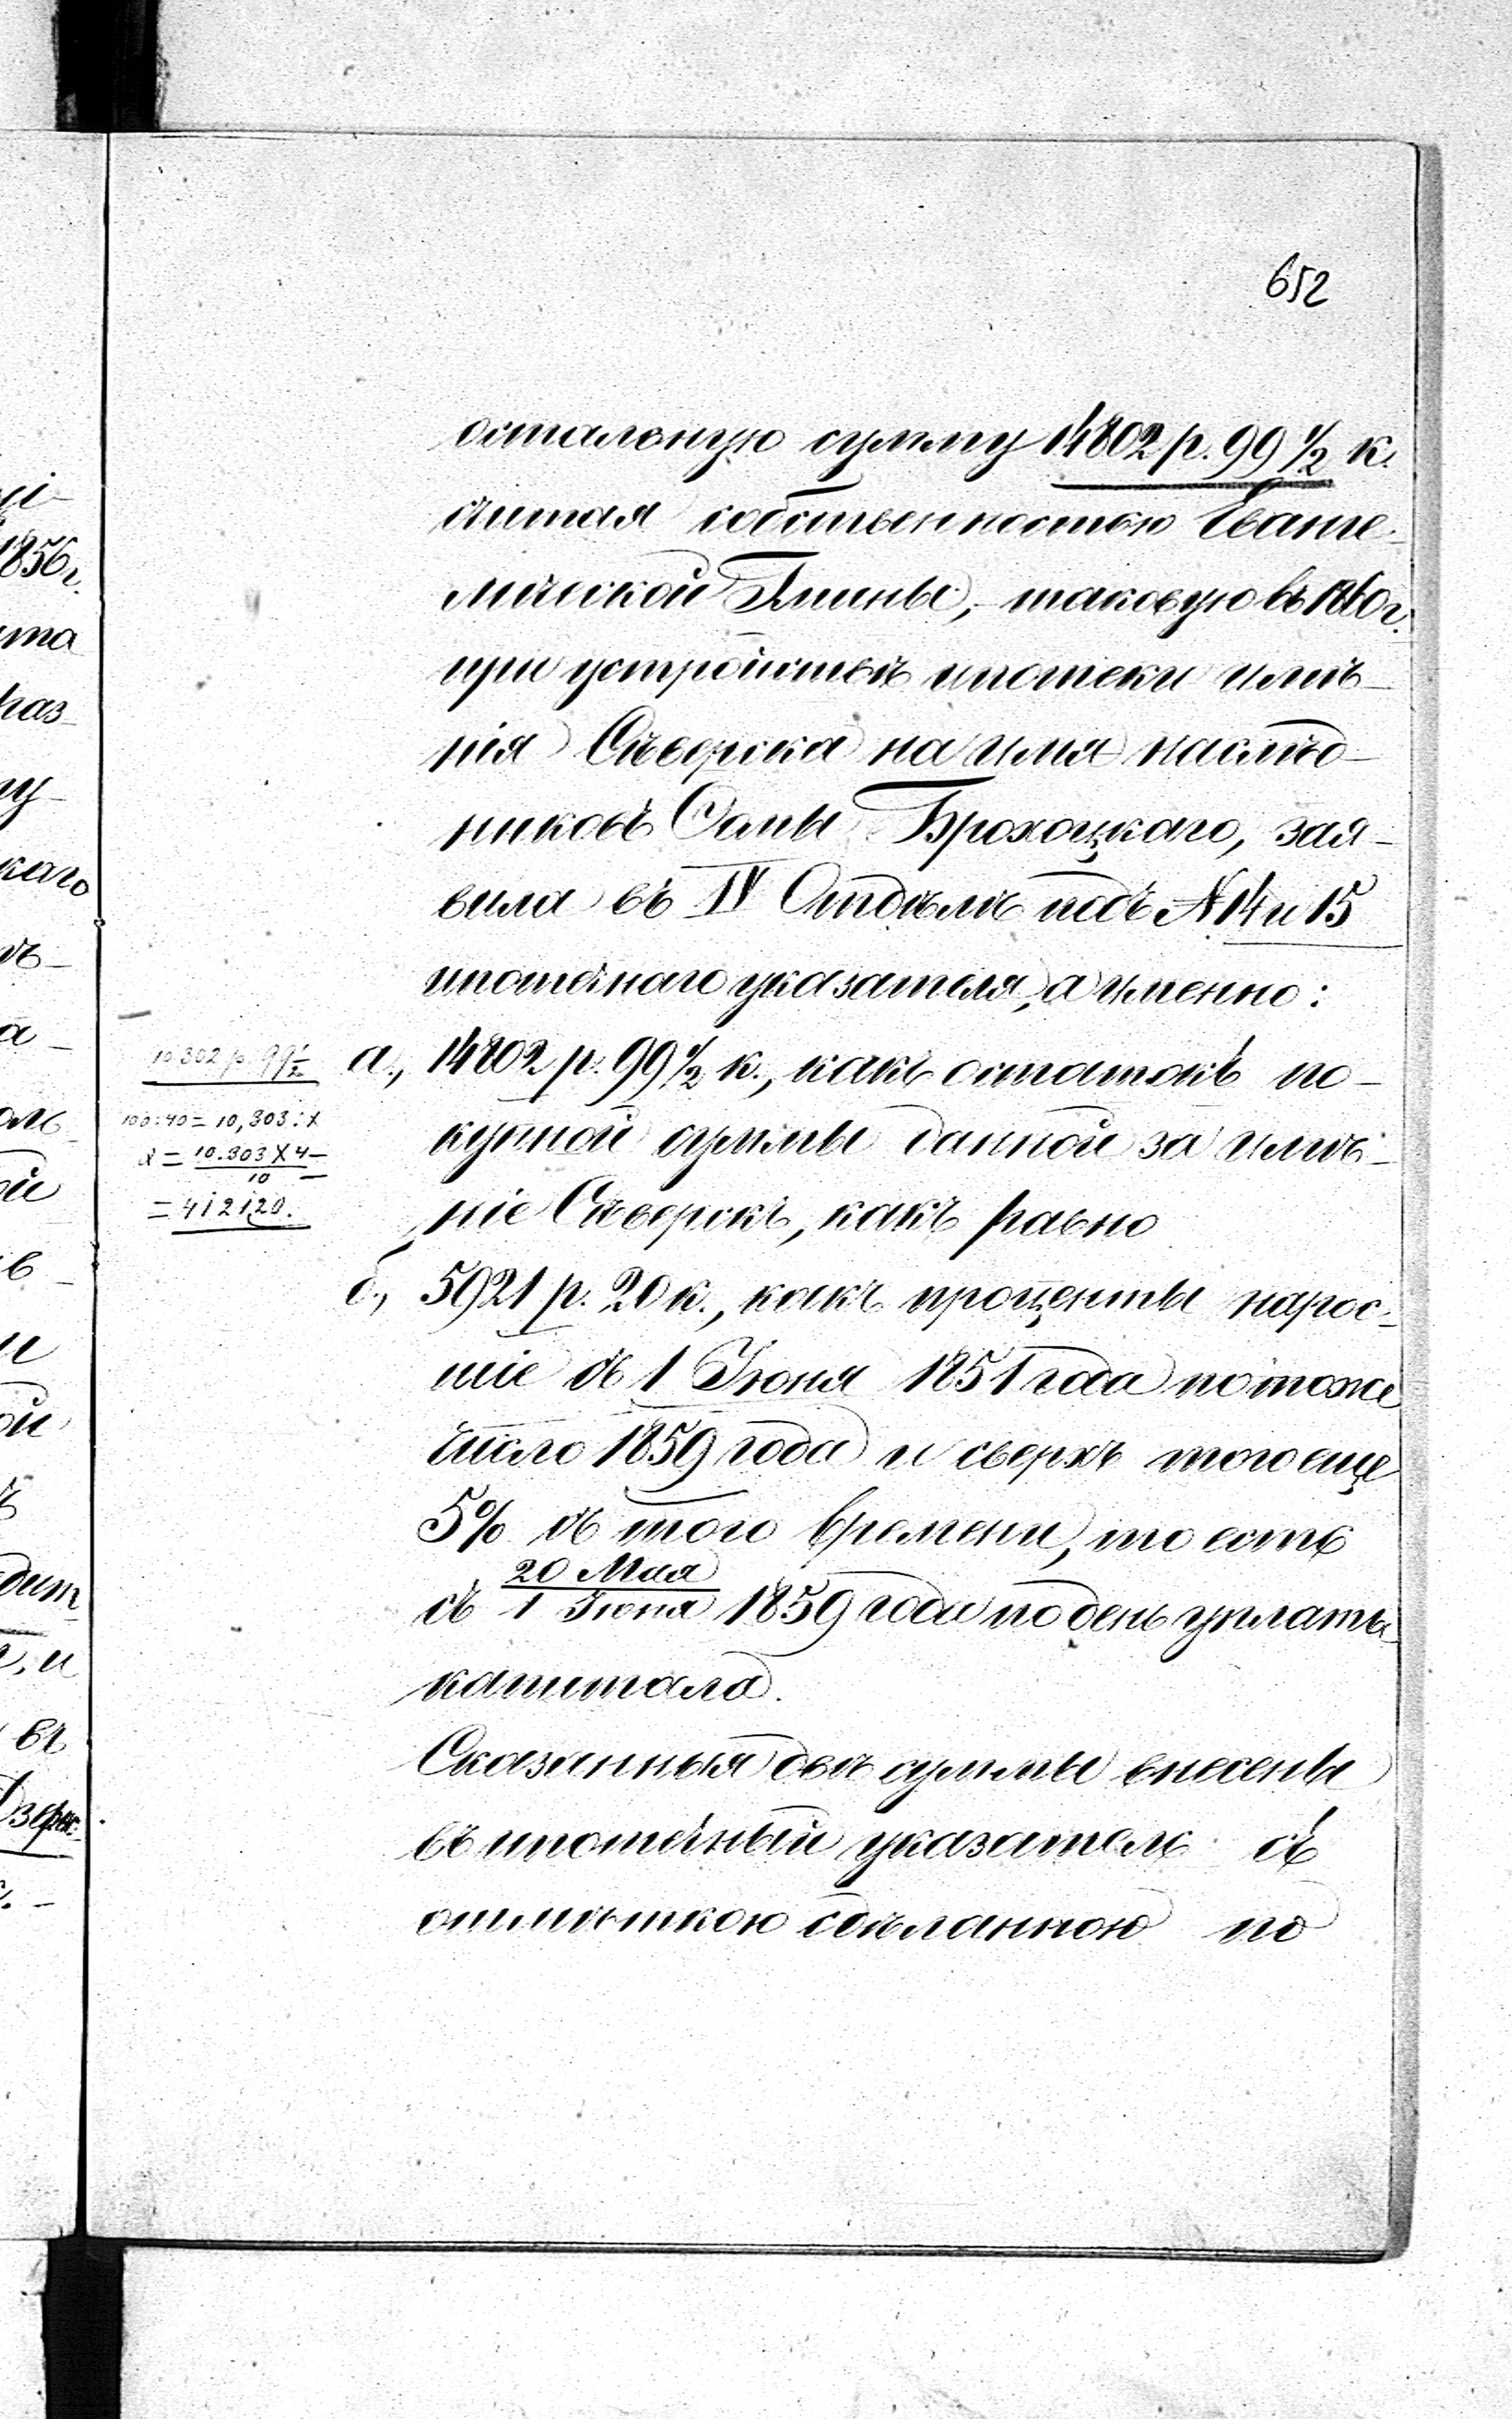 652
остальную сумму 14802 р. 99 1/2 к.
считая собственностью Еванге-
лической Гмины, таковую въ 1860 г.
при устройствѣ ипотеки имѣ-
нія Сѣверска на имя наслѣд-
никовъ Саmы Брохоцкаго, зая-
вила въ IV Отдѣлѣ подъ № 14 и 15
ипотечнаго указателя, а именно:
а., 14802 р. 99 1/2 к., какъ остатокъ по-
купной суммы данной за имѣ-
ніе Сѣверскъ, какъ равно
б., 5921 р. 20 к., какъ проценты нарос-
шіе съ 1 Іюня 1851 года по тоже
число 1859 года и сверхъ того еще
5% съ того времени, то есть
съ 20 Мая / 1 Іюня 1859 года по день уплаты
капитала.
Сказанныя двѣ суммы внесены
въ ипотечный указатель съ
отмѣткою сдѣланною по
10302 р. 99 1/2
100:40 = 10,303:x
x = 10.303 X 4 / 10
= 412120.
1856 г.
ита
каго